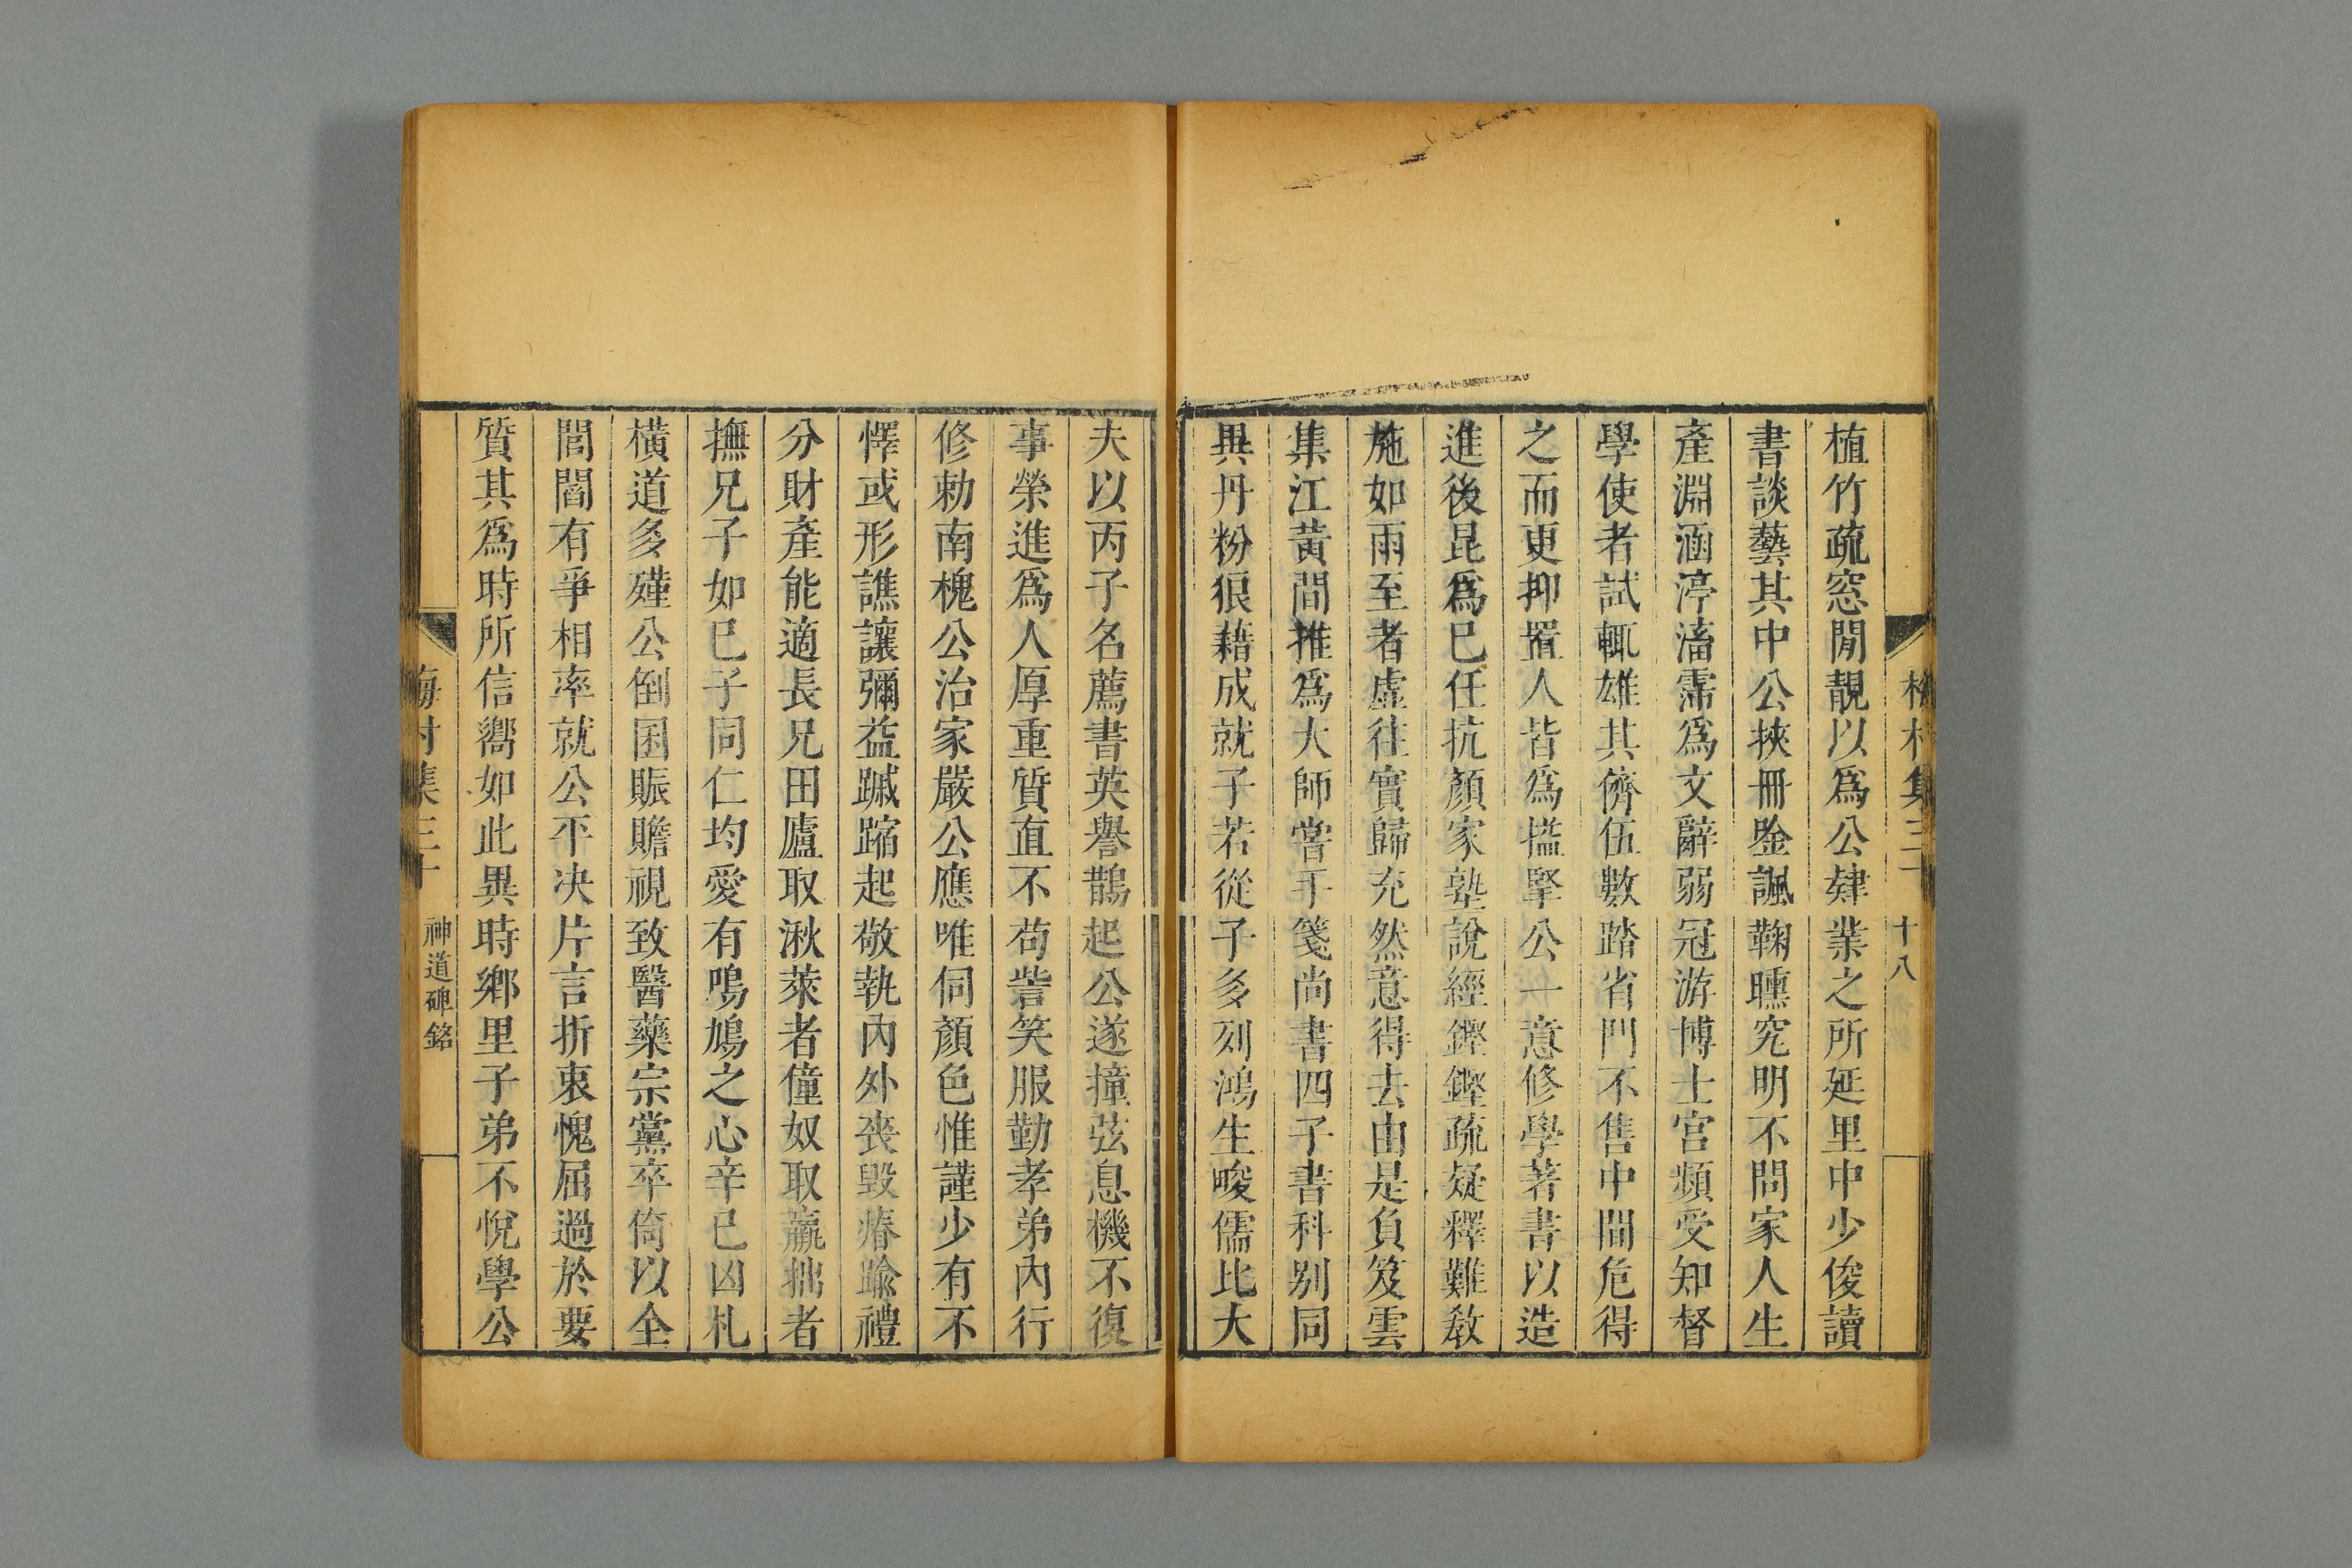 梅村集三十
十八
植竹疏窓閒靚以爲公肄業之所延里中少俊讀
書談藝其中公挾冊唫諷鞠𤍠究明不問家人生
產淵涵渟滀霈爲文辭弱冠游博士宮頻受知督
學使者試輒雄其儕伍數踏省門不售中間危得
之而更抑置人皆爲搤掔公一意修學著書以造
進後昆爲已任抗顏家塾說經鏗鏗疏疑釋難敎
施如雨至者虛往實歸充然意得去由是負笈雲
集江黃間推爲大師嘗手箋尚書四子書科别同
異丹粉狼藉成就子若從子多刻鴻生畯儒比大
夫以丙子名薦書英譽鵲起公遂撞弦息機不復
事榮進爲人厚重質直不苟訾笑服勤孝弟內行
修勅南槐公治家嚴公應唯伺顏色惟謹少有不
懌或形譙讓彌益踧踖起敬執內外喪毀瘠踰禮
分財產能適長兄田廬取湫萊者僮奴取羸拙者
撫兄子如已子同仁均愛有鳲鳩之心辛已凶札
橫道多殣公倒囷賑贍視致醫藥宗黨卒倚以全
閭閻有爭相率就公平决片言折衷愧屈過於要
質其爲時所信嚮如此異時鄉里子弟不悅學公
梅村集三十
神道碑銘